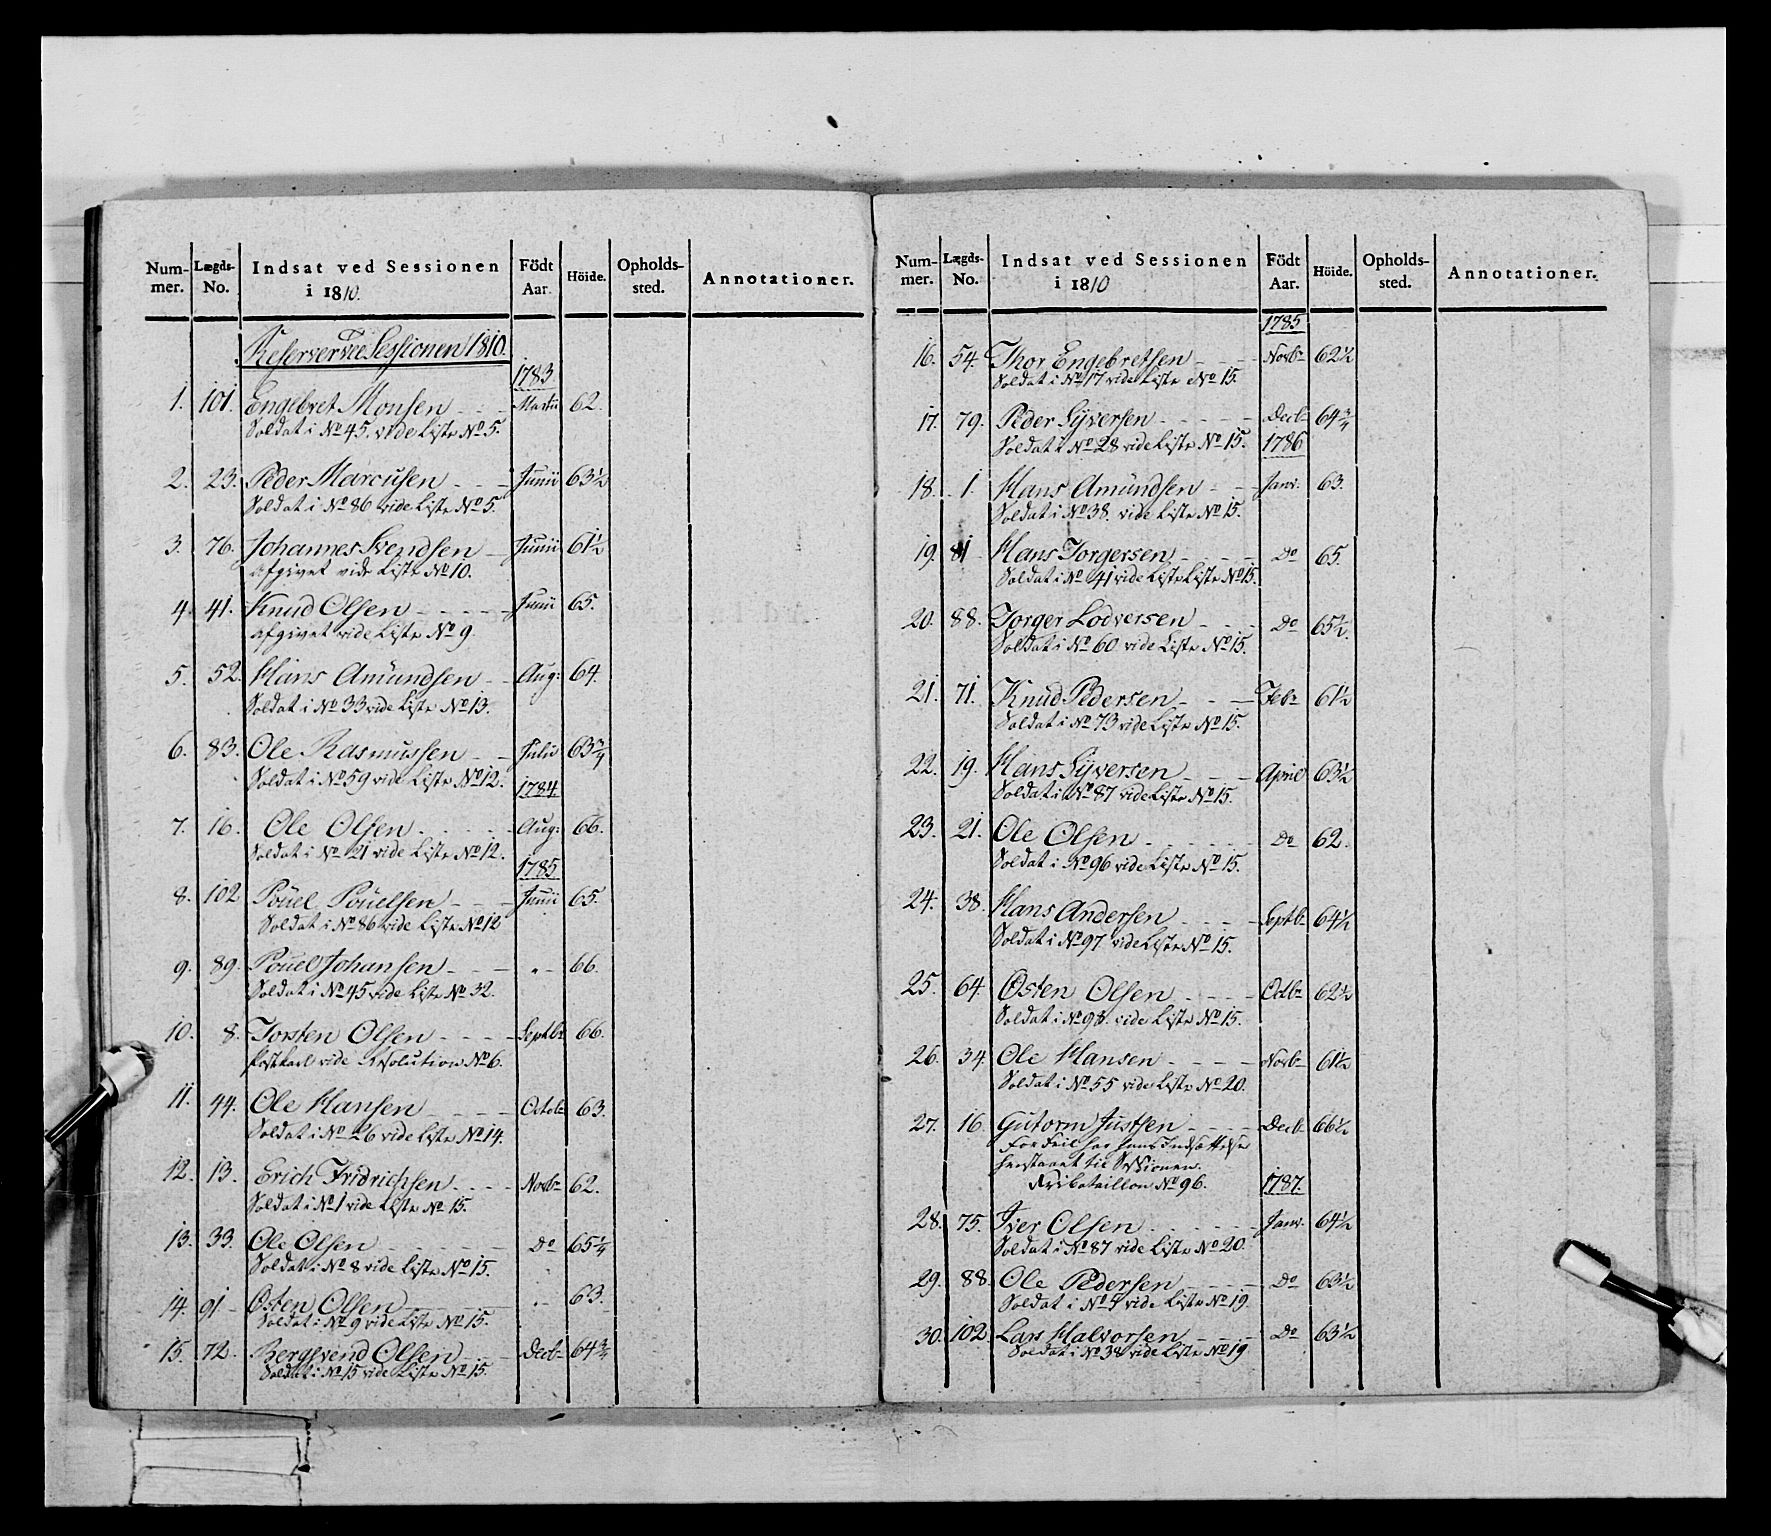 Num- Lægds- Indsat ved Sessionen Födt Höide. Opholds- Annotationer.
mer. No. i 1810. Aar. sted.
Reserver vee Sessionen 1810.
1783
1. 101. Engebret Monsen Martii 62.
Soldat i No 45. vide Liste No 5.
2. 23. Peder Marcusen Junii 63½
Soldat i No 86 vide Liste No 5.
3. 76. Johannes Svendsen Junii 61½
afgivet vide Liste No 10.
4. 41. Knud Olsen Junii 65.
afgivet vide Liste No 9.
5. 52. Hans Amundsen Aug: 64.
Soldat i No 33 vide Liste No 13.
6. 83. Ole Rasmussen Julii 63¾
Soldat i No 59 vide Liste No 12.
1784.
7. 16. Ole Olsen Aug: 66.
Soldat i No 21 vide Liste No 12.
1785.
8. 102 Pouel Pouelsen Junii 65.
Soldat i No 86 vide Liste No 12
9. 89. Pouel Johansen „ 66.
Soldat i No 45 vide Liste No 32.
10. 8. Torsten Olsen Septbr 66.
Postkarl vide Resolution No 6.
11. 44. Ole Hansen Octobr 63.
Soldat i No 26 vide Liste No 14.
12. 13. Erich Fridrichsen Novbr 62.
Soldat i No 1 vide Liste No 15.
13. 33. Ole Olsen Do 65¼
Soldat i No 8 vide Liste No 15.
14. 91 Østen Olsen „ 63.
Soldat i No 9 vide Liste No 15.
15. 72. Bergsvend Olsen Decbr 64¾
Soldat i No 15 vide Liste No 15.
Num- Lægds- Indsat ved Sessionen Födt Höide. Opholds- Annotationer.
mer. No. i 1810 Aar. sted.
1785
16. 54. Thor Engebretsen Novbr 62½
Soldat i No 17 vide Liste No 15.
17. 79. Peder Syversen Decbr 64¾
Soldat i No 28 vide Liste No 15.
1786
18. 1. Hans Amundsen Janr. 63.
Soldat i No 38. vide Liste No 15.
19. 81 Hans Jorgersen Do 65.
Soldat i No 41 vide Liste Liste No 15.
20. 88. Jorger Lodversen Do 65½.
Soldat i No 60 vide Liste No 15.
21. 71. Knud Pedersen Febr 61½
Soldat i No 73 vide Liste No 15.
22. 19. Hans Syversen April 63½
Soldat i No 87 vide Liste No 15.
23. 21. Ole Olsen Do 62.
Soldat i No 96 vide Liste No 15.
24. 38. Hans Andersen Septbr 64½
Soldat i No 97 vide Liste No 15.
25. 64. Østen Olsen Octbr 62½
Soldat i No 98. vide Liste No 15.
26. 34. Ole Hansen Novbr 61½
Soldat i No 55 vide Liste No 20.
27. 16. Gutorm Justsen Decbr 66½
For Feil har hans Indsættelse
henstaaet til Sessionen.
Fribataillon No 96.
1787.
28. 75. Iver Olsen Janr. 64½
Soldat i No 87 vide Liste No 20.
29. 88. Ole Pedersen Do 63½
Soldat i No vide Liste No 19.
30. 102. Lars Halvorsen Do 63½
Soldat i No 38 vide Liste No 19